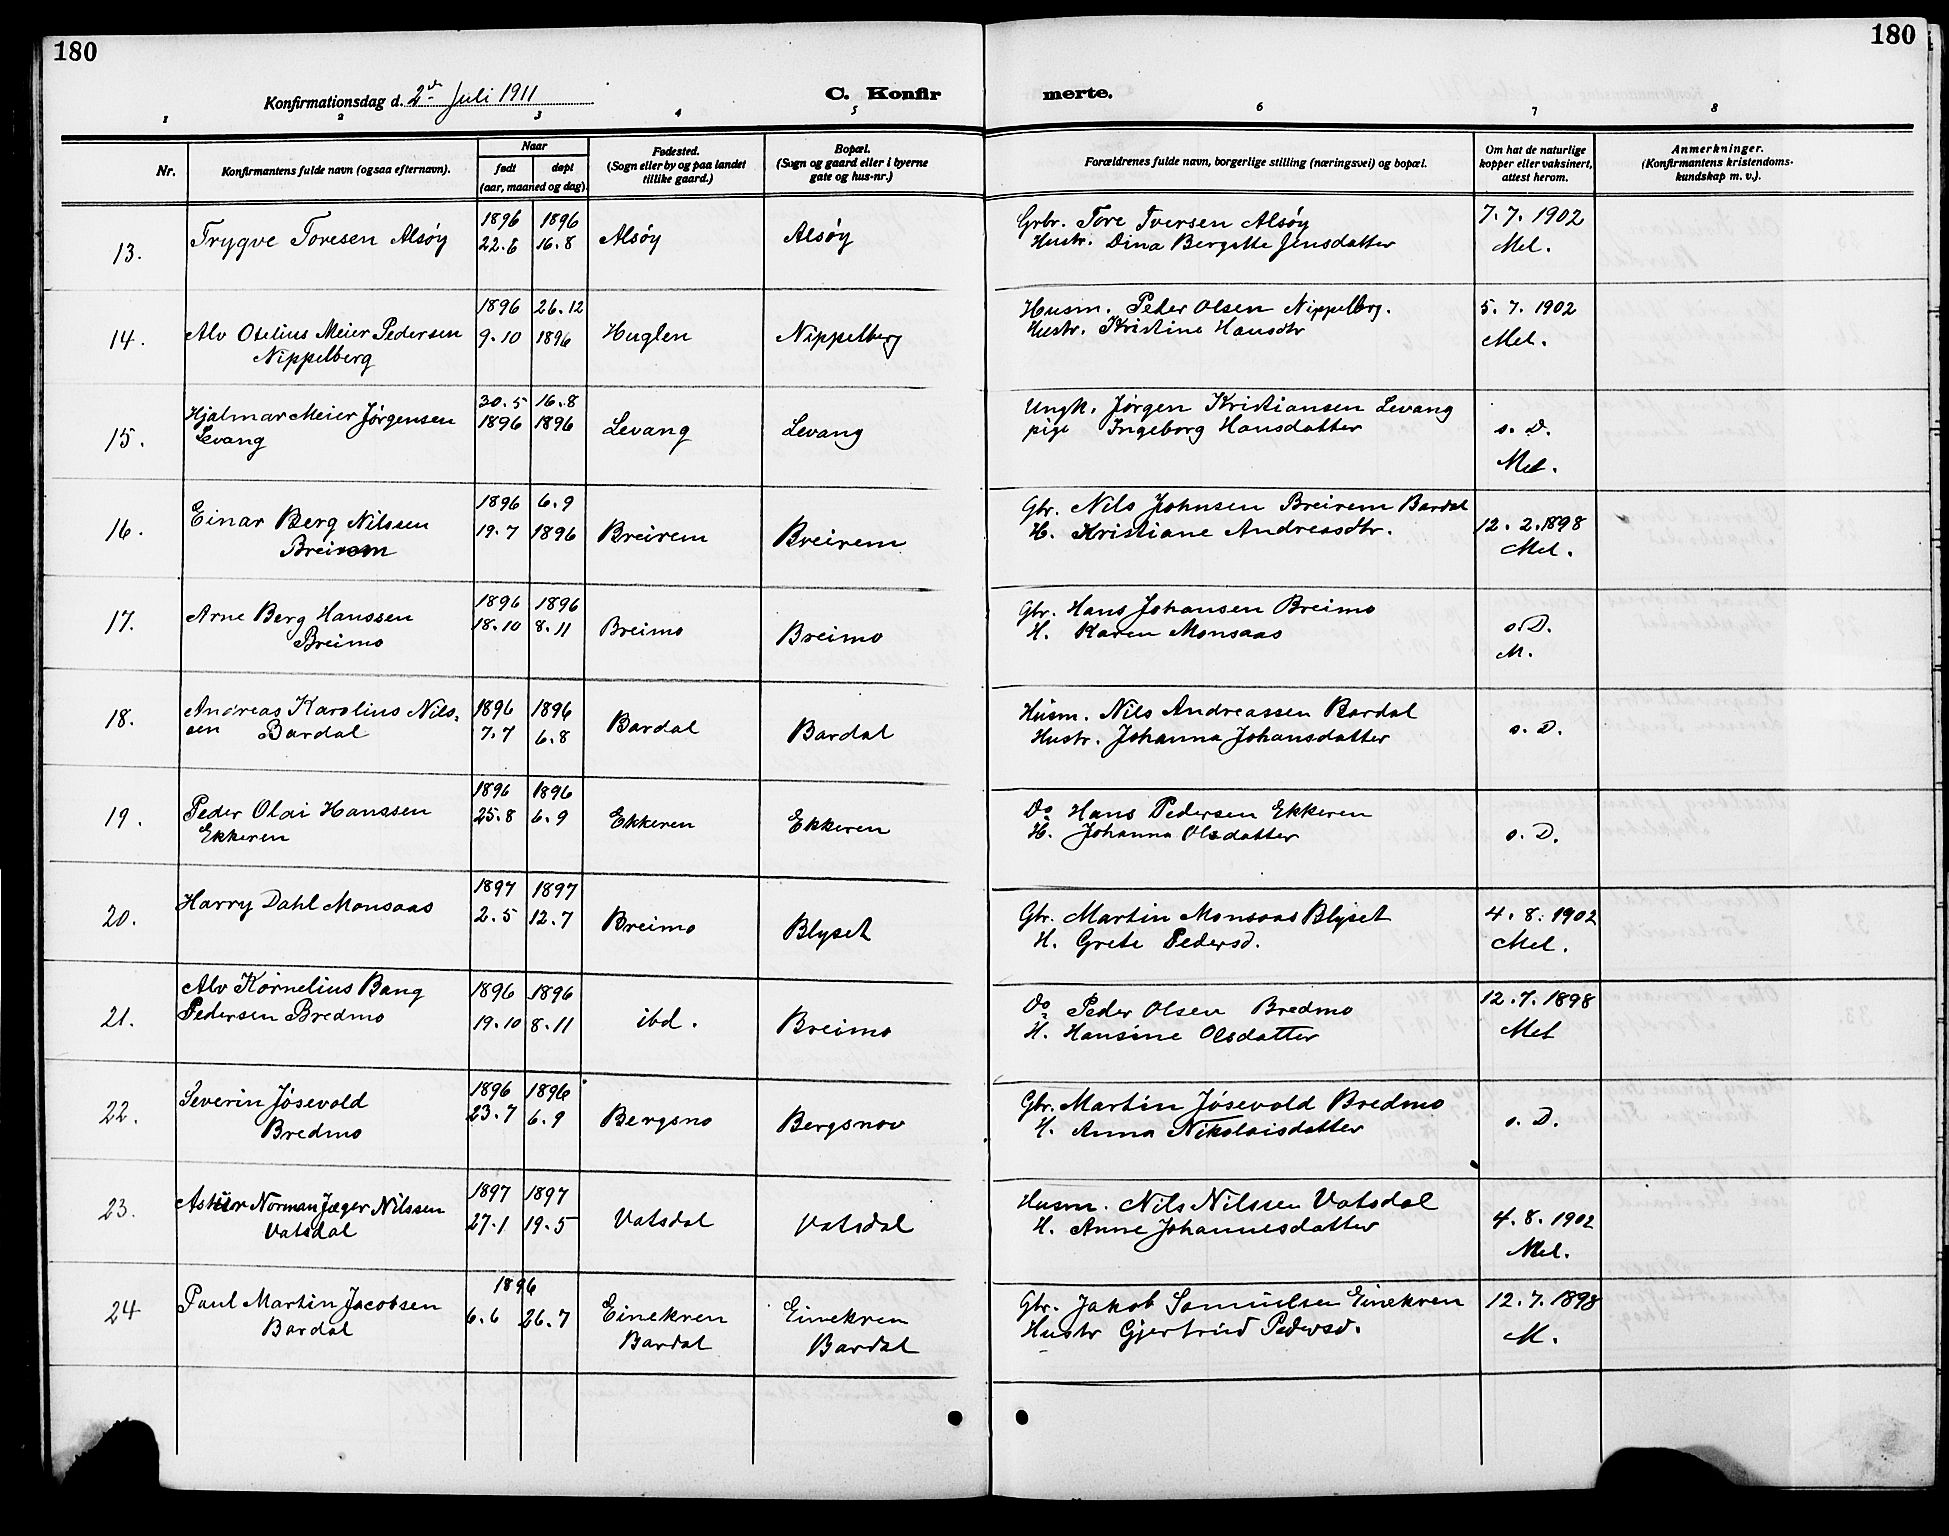 180
180
Konfirmationsdag d. 2den Juli 1911
C. Konfirmerte.
1 2 3 4 5 6 7 8
Nr.
Konfirmantens fulde navn (ogsaa efternavn).
Naar
født
døpt
(aar, maaned og dag).
Fødested.
(Sogn eller by og paa landet
tillike gaard.)
Bopæl.
(Sogn og gaard eller i byerne
gate og hus-nr.)
Forældrenes fulde navn, borgerlige stilling (næringsvei) og bopæl.
Om hat de naturlige
kopper eller vaksinert,
attest herom.
Anmerkninger.
(Konfirmantens kristendoms-
kundskap m. v.).
13. Trygve Toresen Alsøy
1896 1896
22.6 16.8
Alsøy
Alsøy
Grbr. Tore Iversen Alsøy
Hustr. Dina Bergitte Jensdatter
7.7.1902
Mel.
14. Alv Otelius Meier Pedersen
Nippelberg
1896 26.12
9.10 1896
Huglen
Nippelberg
Husm. Peder Olsen Nippelbrg.
Hustr. Kristine Hansdtr
5.7.1902
Mel.
15. Hjalmar Meier Jørgensen
Levang
30.5 16.8
1896 1896
Levang
Levang
Ungk. Jørgen Kristiansen Levang
pige Ingeborg Hansdatter
s. D.
Mel.
16. Einar Berg Nilssen
Breirem
1896 6.9
19.7 1896
Breirem
Breirem
Gbr. Nils Johnsen Breirem Bardal
H. Kristiane Andreasdtr.
12.2.1898
Mel.
17. Arne Berg Hanssen
Breimo
1896 1896
18.10 8.11
Breimo
Breimo
Gbr. Hans Johansen Breimo
H. Karen Monsaas
s. D.
M.
18. Andreas Karolius Nils-
sen Bardal
1896 1896
7.7 6.8
Bardal
Bardal
Husm. Nils Andreassen Bardal
Hustr. Johanna Johansdatter
s. D.
19. Peder Olai Hanssen
Ekkeren
1896 1896
25.8 6.9
Ekkeren
Ekkeren
Do Hans Pedersen Ekkeren
H. Johanna Olsdatter
s. D.
20. Harry Dahl Monsaas
1897 1897
2.5 12.7
Breimo
Blyset
Gbr. Martin Monsaas Blyset
H. Grete Pedersd.
4.8.1902
Mel.
21. Alv Kornelius Bang
Pedersen Bredmo
1896 1896
19.10 8.11
ibd.
Breimo
Do Peder Olsen Bredmo
H. Hansine Olsdatter
12.7.1898
Mel
22. Severin Jøsevold
Bredmo
1896 1896
23.7 6.9
Bergsno
Bergsnov
Gbr. Martin Jøsevold Bredmo
H. Anna Nikolaisdatter
s. D.
23. Norman Jæger Nilssen
Vatsdal
1897 1897
27.1 19.5
Vatsdal
Vatsdal
Husm. Nils Nilssen Vatsdal
H. Anne Johannesdatter
4.8.1902
Mel.
24 Paul Martin Jacobsen
Bardal
1896
6.6 26.7
Einekren
Bardal
Einekren
Bardal
Gbr. Jakob Samuelsen Einekren
Hustr Gjertrud Pedersd.
12.7.1898
M.